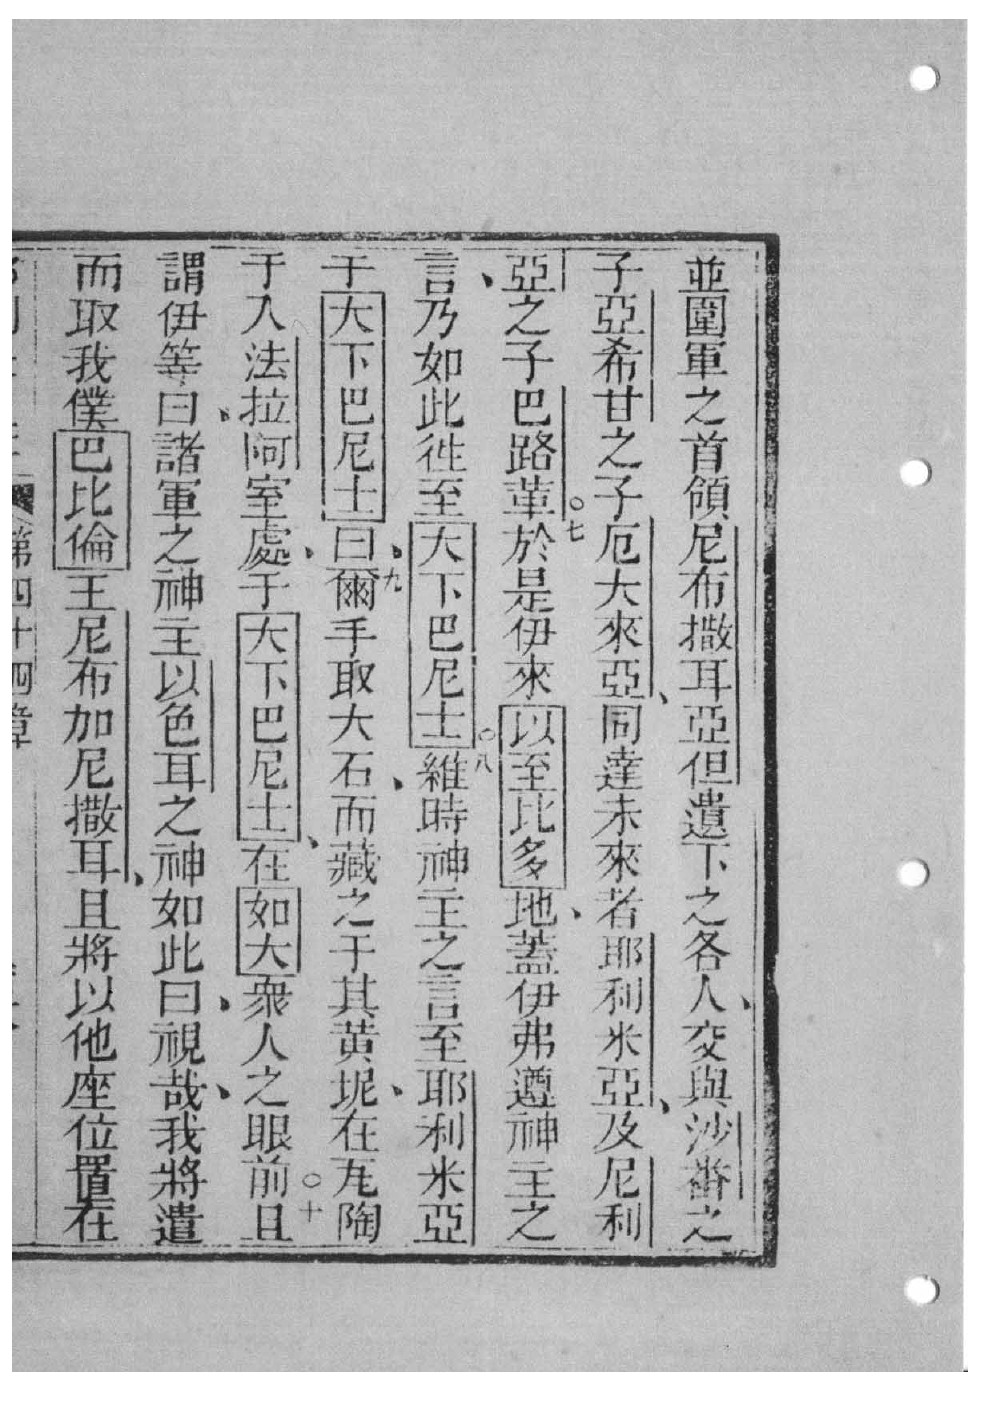 並圍軍之首領尼布撒耳亞但遺下之各人、交與沙番之
子亞希甘之子厄大來亞、同達未來者耶利米亞、及尼利
亞之子巴路革○七於是伊來以至比多地、蓋伊弗遵神主之
言、乃如此徃至大下巴尼士○八維時神主之言至耶利米亞
于大下巴尼士曰、九爾手取大石、而藏之于其黃坭、在瓦陶
于入法拉阿室處、于大下巴尼士、在如大衆人之眼前○十且
謂伊等曰、諸軍之神主以色耳之神如此曰、視哉、我將遣
而取我僕巴比倫王尼布加尼撒耳、且將以他座位置在
第四十四章